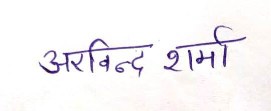 अरविन्द शर्मा